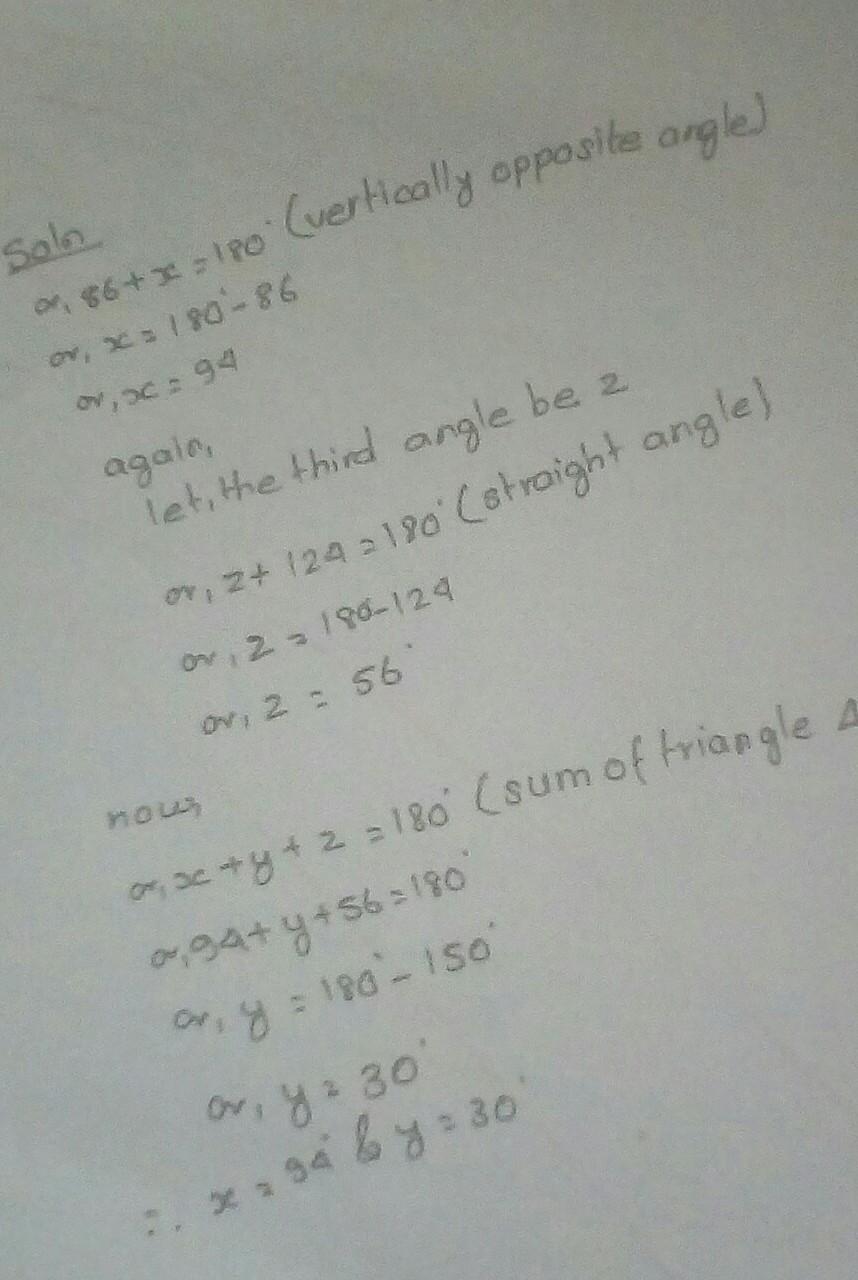 Soln
or, 86+x=180° (vertically opposite angle)
or, x=180°-86
or, x=94
again,
let, the third angle be z
or, z+124=180° (straight angle)
or, z=180-124
or, z=56°
now,
or, x+y+z=180° (sum of triangle Δ
or, 94+y+56=180°
or, y=180°-150°
or, y=30°
∴ x=94° & y=30°